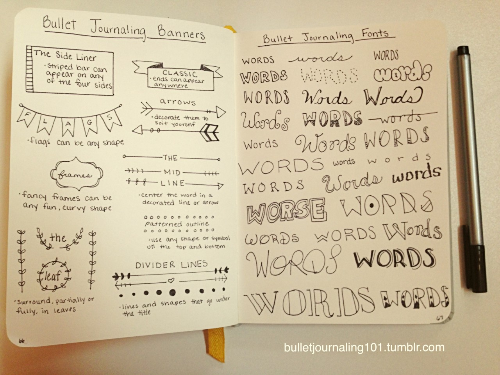 Bullet Journaling Banners
The Side Liner
-striped bar can
appear on any
of the four sides
FLAGS
-flags can be any shape
frames
-fancy frames can be
any fun, curvy shape
the
leaf
-surround, partially or
fully, in leaves
66
CLASSIC
-ends can appear
anywhere
arrows
-decorate them to
suit yourself
THE
MID
LINE
-center the word in a
decorated line or arrow
Patterned outline
-use any shape or symbol
at the top and bottom
DIVIDER LINES
-lines and shapes that go under
the title
Bullet Journaling Fonts
WORDS words WORDS
WORDS WORDS words
WORDS Words Words
Words WORDS words
Words Words WORDS
WORDS words words
WORDS Words words
WORSE WORDS
WORDS WORDS Words
WORDS WORDS
WORDS WORDS
67
bulletjournaling101.tumblr.com